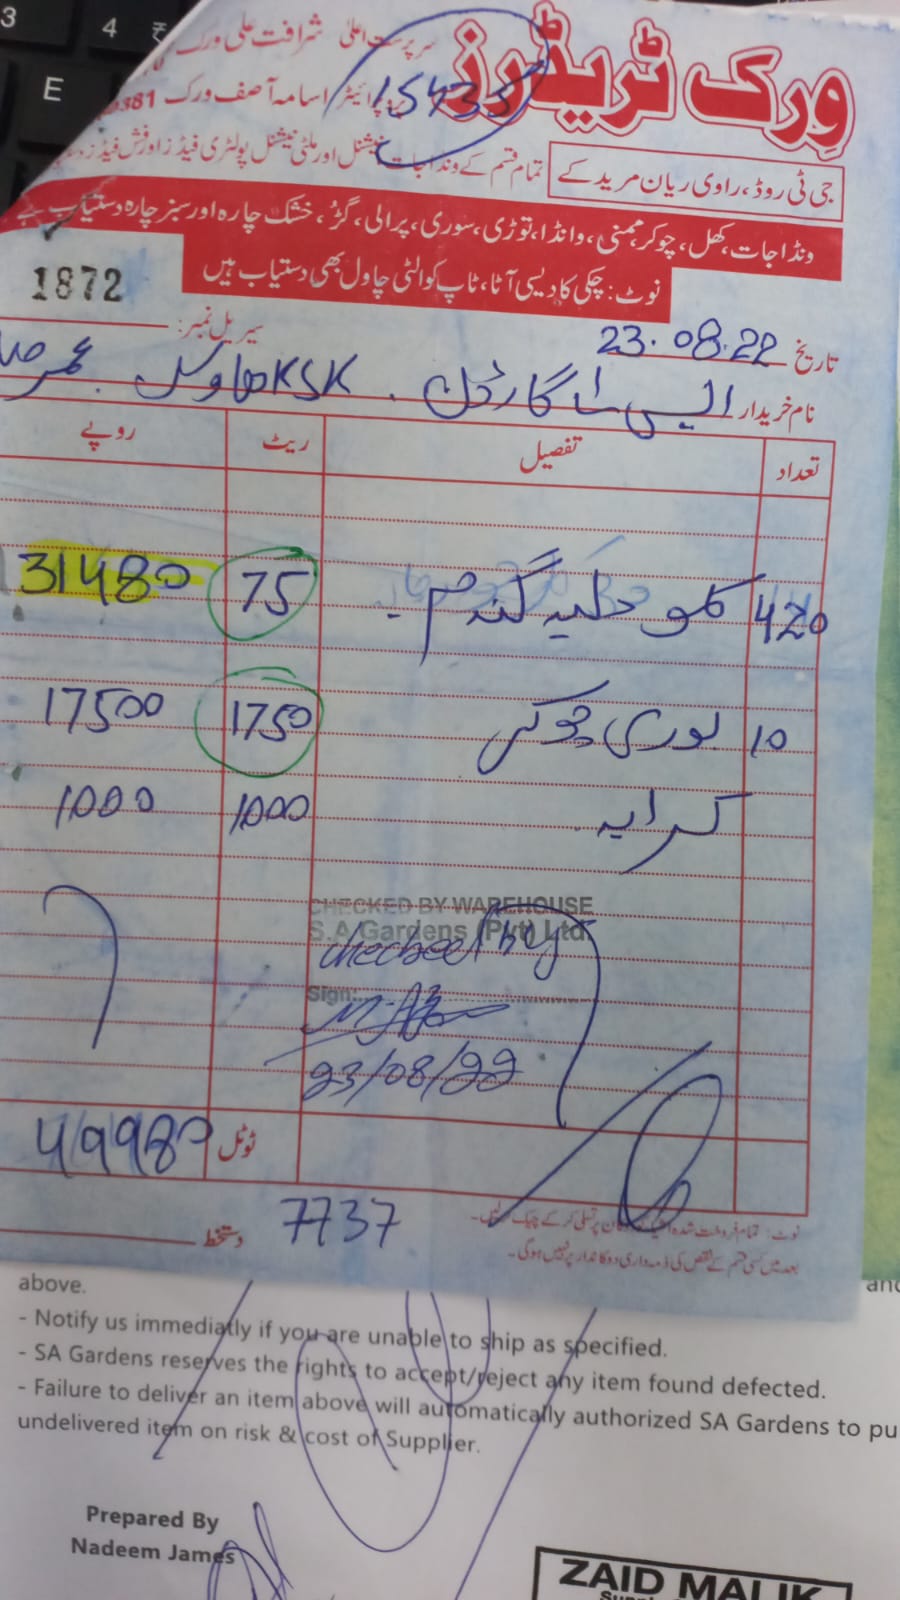 3
4
E
ورک ٹریڈرز
سرپرست اعلیٰ شرافت علی ورک
15435
اسامہ آصف ورک 381
جی ٹی روڈ، راوی ریان مریدکے
تمام قسم کے ونڈا جات نیشنل اور ملٹی نیشنل پولٹری فیڈز اور فش فیڈز
ونڈا جات، کھل، چوکر، ممنی، وانڈا، توڑی، سوری، پرالی، گڑ، خشک چارہ اور سبز چارہ دستیاب ہے
نوٹ: چکی کا دیسی آٹا، ٹاپ کوالٹی چاول بھی دستیاب ہیں
1872
سیریل نمبر:
تاریخ 23.08.22
نام خریدار ایس اے گارڈن . KSK ھاوس . عمر
تعداد تفصیل ریٹ روپے
420 کلو دلیہ گندم - 75 31480
10 بوری چوکر 1750 17500
کرایہ 1000 1000
CHECKED BY WAREHOUSE
S.A Gardens (Pvt) Ltd.
Checked by
Sign:
23/08/22
ٹوٹل 49980
7737
دستخط
نوٹ: تمام فروخت شدہ
بعد میں کسی قسم کے نقص کی ذمہ داری دوکاندار پر نہیں ہوگی۔
above.
- Notify us immediatly if you are unable to ship as specified.
- SA Gardens reserves the rights to accept/reject any item found defected.
- Failure to deliver an item above will automatically authorized SA Gardens to pu
undelivered item on risk & cost of Supplier.
Prepared By
Nadeem James
ZAID MALIK